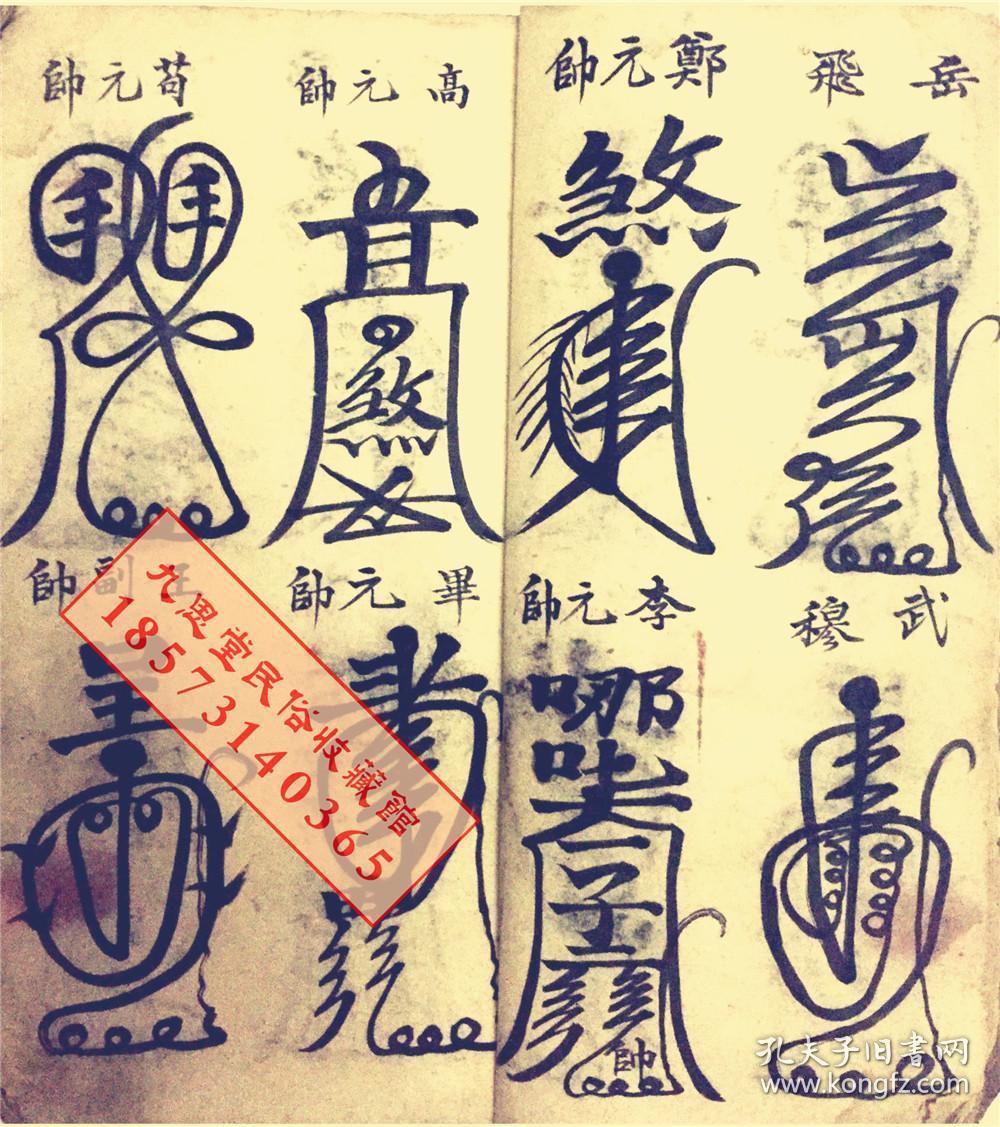 岳飛
鄭元帥
高元帥
苟元帥
煞
煞
手手
武穆
李元帥
畢元帥
副帥
哪
子
帥
九思堂民俗收藏館
18573140365
孔夫子旧书网
www.kongfz.com